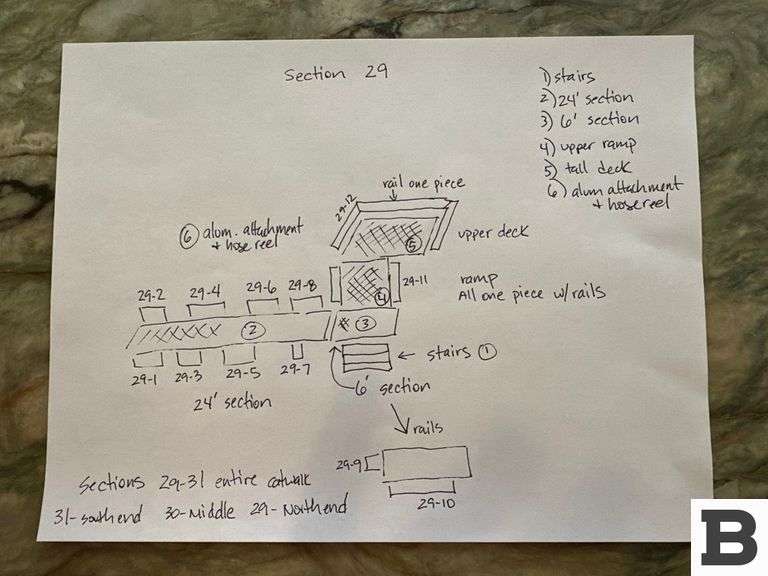 Section 29
1) stairs
2) 24' section
3) 6' section
4) upper ramp
5) tall deck
6) alum attachment
+ hose reel
rail one piece
29-12
6 alum. attachment
+ hose reel
5
upper deck
29-2 29-4 29-6 29-8
4
29-11
ramp
All one piece w/rails
2
3
29-1 29-3 29-5 29-7
← stairs 1
24' section
6' section
rails
29-9
29-10
Sections 29-31 entire catwalk
31- south end 30- Middle 29- North end
B